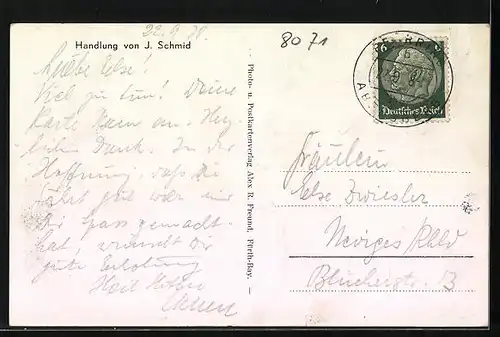 22.9.
Handlung von J. Schmid
8071
Else!
Viel zu tun! Deine
Karte kam an. Herz-
lichen Dank. In der
Hoffnung, dass die
Fahrt
Dir Spass gemacht
hat, wünscht Dir
gute Erholung
Heil Hitler
Photo- u. Postkartenverlag Alex R. Freund, Fürth-Bay. —
6
Deutsches Reich
Fräulein
Else Zwiesler
Neviges Rhld
Blücherstr. 13